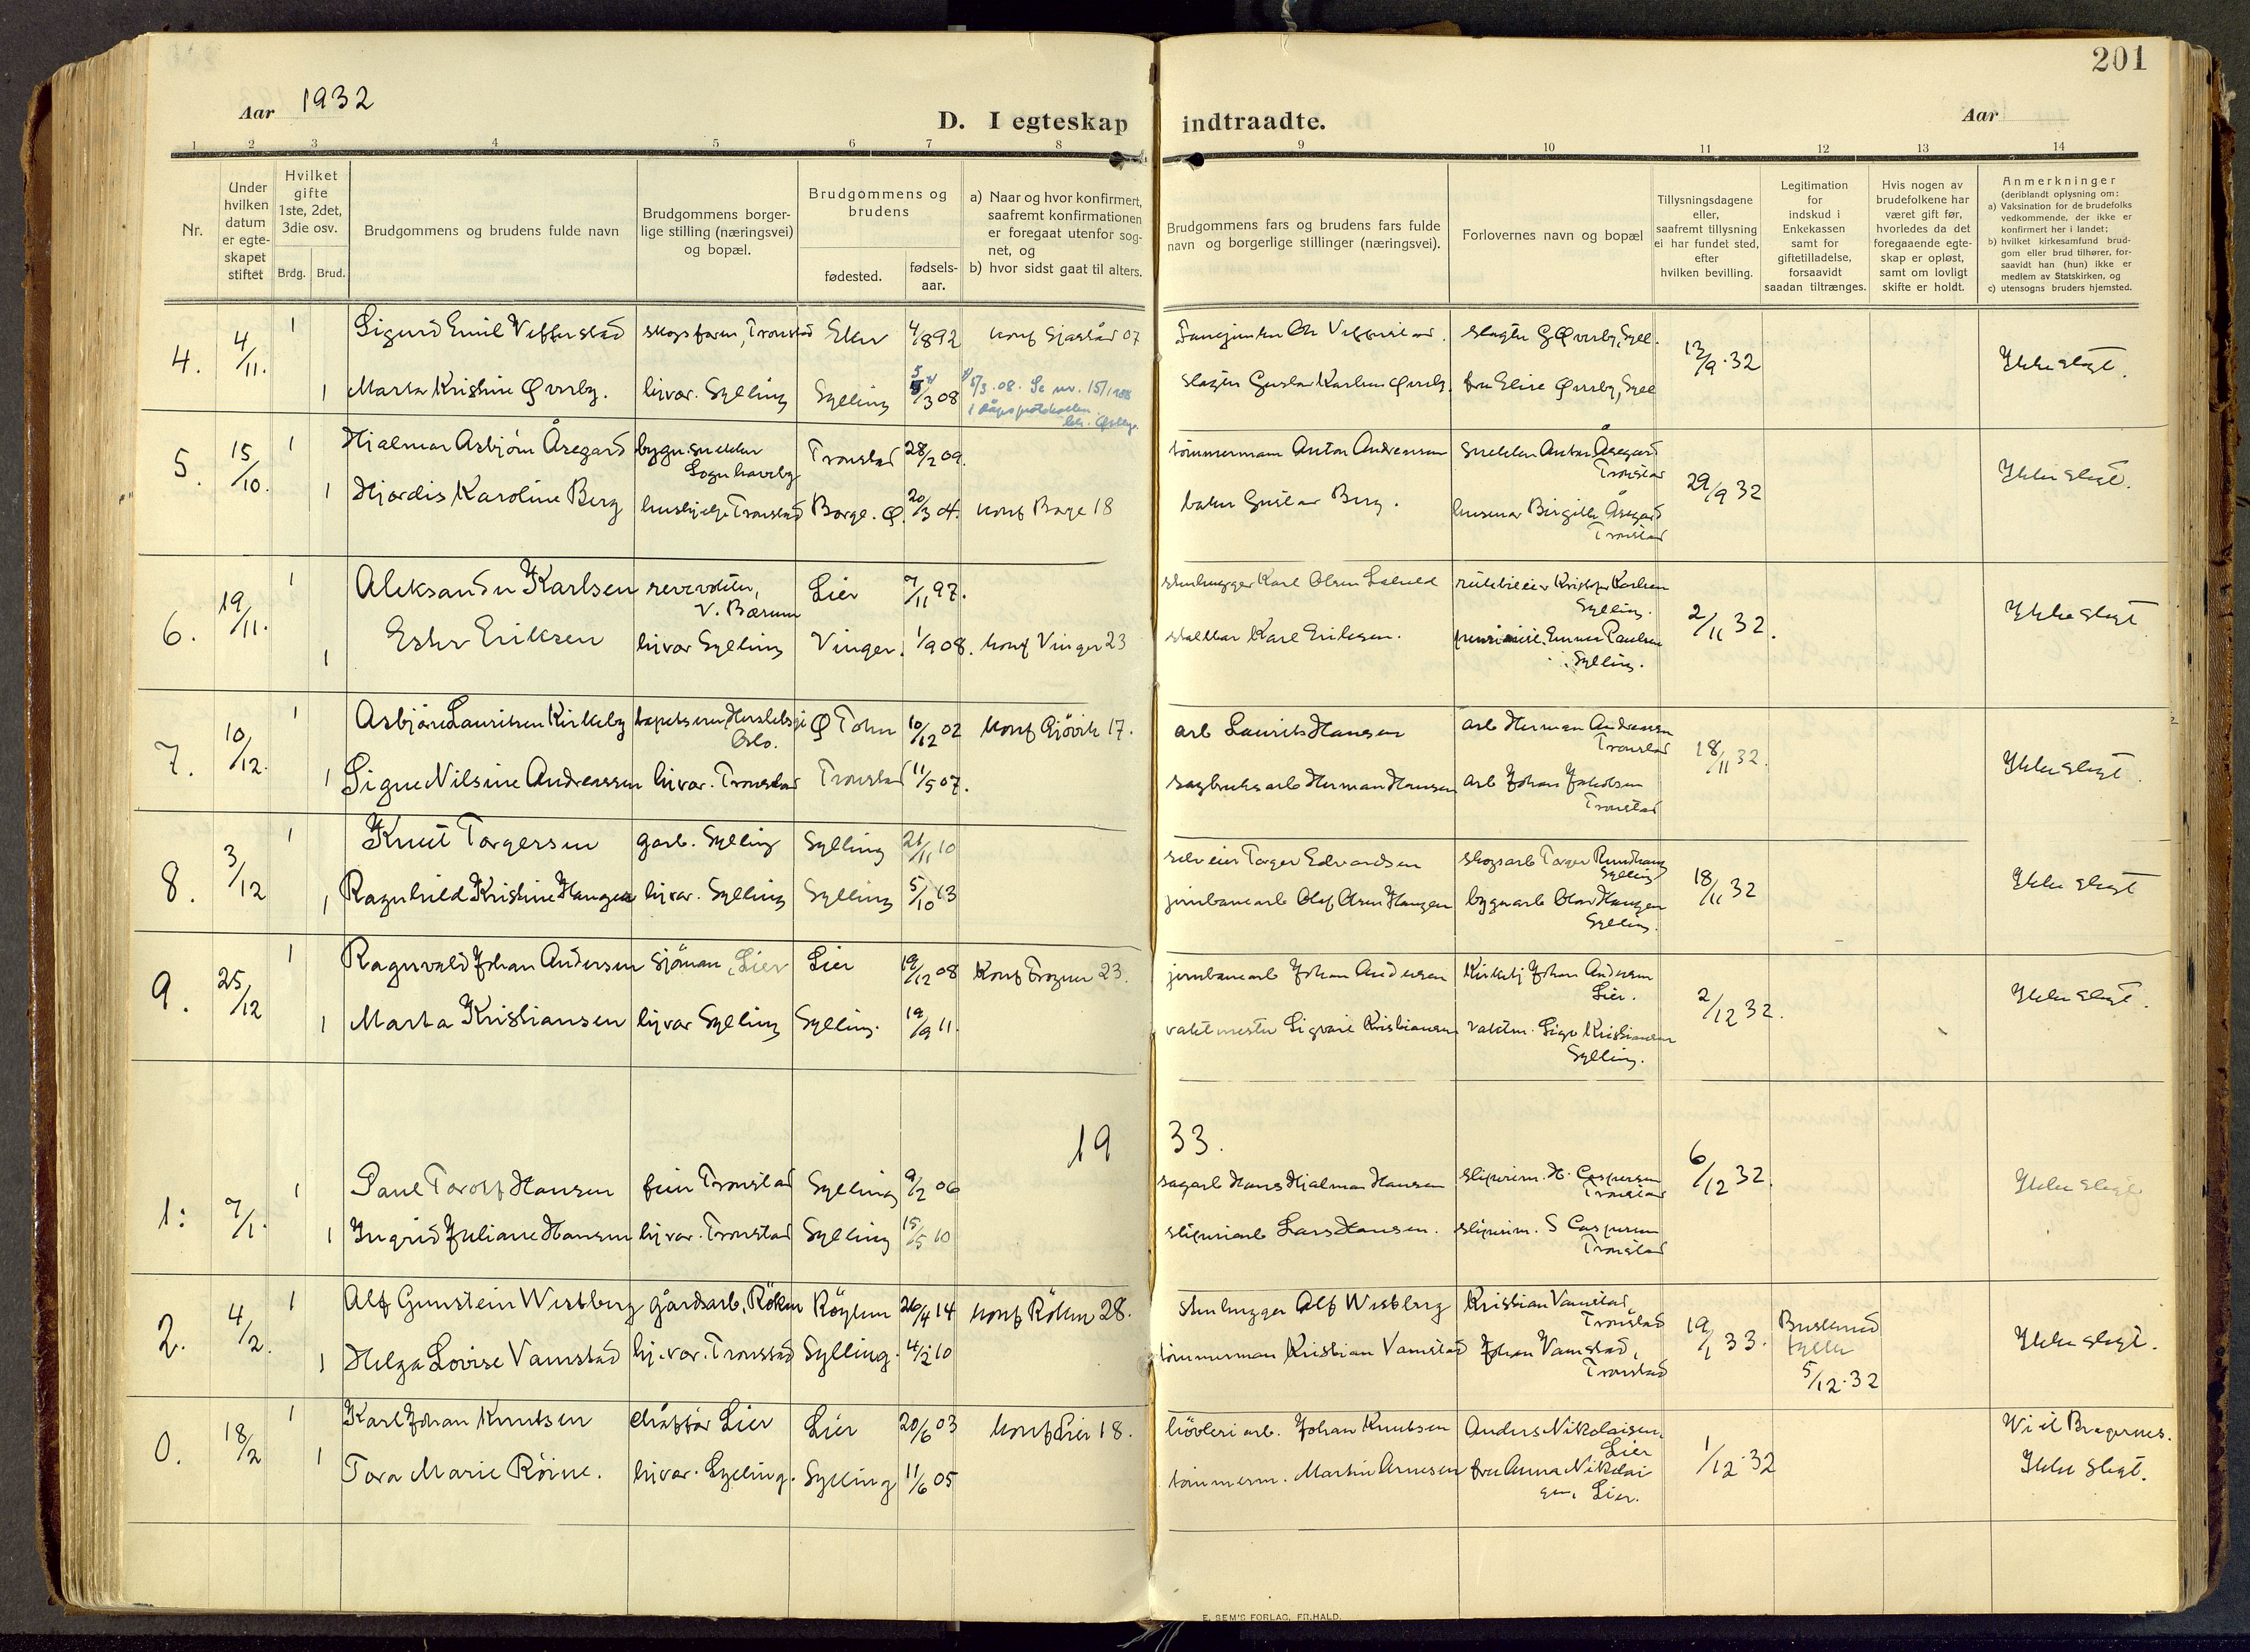 201
Aar 1932
D. I egteskap indtraadte.
Aar
1 2 3 4 5 6 7 8 9 10 11 12 13 14
Nr.
Under hvilken datum er egte-skapet stiftet
Hvilket gifte 1ste, 2det, 3die osv.
Brdg. Brud.
Brudgommens og brudens fulde navn
Brudgommens borger-lige stilling (næringsvei) og bopæl.
Brudgommens og brudens
fødested.
fødsels-aar.
a) Naar og hvor konfirmert, saafremt konfirmationen er foregaat utenfor sog-net, og
b) hvor sidst gaat til alters.
Brudgommens fars og brudens fars fulde navn og borgerlige stillinger (næringsvei).
Forlovernes navn og bopæl
Tillysningsdagene eller, saafremt tillysning ei har fundet sted, efter hvilken bevilling.
Legitimation for indskud i Enkekassen samt for giftetilladelse, forsaavidt saadan tiltrænges.
Hvis nogen av brudefolkene har været gift før, hvorledes da det foregaaende egte-skap er opløst, samt om lovligt skifte er holdt.
Anmerkninger
(deriblandt oplysning om:
a) Vaksination for de brudefolks vedkommende, der ikke er konfirmert her i landet;
b) hvilket kirkesamfund brud-gom eller brud tilhører, for-saavidt han (hun) ikke er medlem av Statskirken, og
c) utensogns bruders hjemsted.
4. 4/11. 1 Sigurd Emil Vefferstad Tronstad Eker 4/8 92 konf Sjåstad 07 12/9.32 Ikke slegt.
1 Marta Kristine Øverby. hjvær. Sylling Sylling 5/3 08 5/3.08. Se nr. 15/1908 slagter Gustav Karlsen Øverby. fru Elise Øverby, Syll
5. 15/10. 1 Hjalmar Asbjörn Åsegard bygn.snekker Tronstad 28/2 09. tömmermann Anton Andreassen snekker Anton Åsegard Tronstad 29/9 32 Ikke slegt.
1 Hjördis Karoline Berg hushjelp Tronstad Borge. Ø. 20/3 04. konf Borge 18 baker Gustav Berg. husmor Birgitte Åsegard Tronstad
6. 19/11. 1 Aleksander Karlsen V. Bærum Lier 7/11 97. stenhugger Karl Olsen Kristofer Karlsen Sylling. 2/11 32. Ikke slegt
1 Ester Eriksen hjvær Sylling Vinger. 1/9 08. konf Vinger 23 Karl Eriksen. Emma Paulsen Sylling.
7. 10/12. 1 Asbjörn Lauritsen Kirkeby tapetserer Oslo. Ø Toten 10/12 02 konf Gjövik 17. arb Laurits Hansen arb Herman Andreassen Tronstad 18/11 32. Ikke slegt.
1 Signe Nilsine Andreassen hjvær. Tronstad Tronstad 11/5 07. sagbruksarb Herman Hansen arb Johan Jakobsen Tronstad
8. 3/12 1 Knut Torgersen garb. Sylling Sylling 21/11 10 selveier Torger Edvardsen skogsarb Torger Sylling 18/11 32 Ikke slegt
1 Ragnhild Kristine Haugen hjvær. Sylling Sylling 5/10 13 jernbanearb Olaf Olsen Haugen bygnarb Olav Haugen Sylling.
9. 25/12 1 Ragnvald Johan Andersen sjömann, Lier Lier 19/12 08 Konf Frogner 23. jernbanearb Johan Andersen Kirketj Johan Andersen Lier. 2/12 32. Ikke slegt.
1 Marta Kristiansen hjvær Sylling Sylling. 19/9 11. vaktmester Sigvart Kristiansen vaktm. Sigv Kristiansen Sylling.
19 33.
1. 7/1. 1 Paul Torolf Hansen Tronstad Sylling 9/2 06 sagarb Hans Hjalmar Hansen sliperim. H. Caspersen Tronstad 6/12 32. Ikke slegt
1 Ingrid Juliane Hansen hjvær. Tronstad Sylling 15/5 10 sliperiarb Lars Hansen. sliperim. S Caspersen Tronstad
2. 4/2. 1 Alf Gunstein Westberg gårdsarb, Röken Röyken 26/4 14 konf Röken 28. stenhugger Alf Westberg Kristian Vamstad, Tronstad 19/1 33. Buskerud fylke 5/12.32 Ikke slegt.
1 Helga Lovise Vamstad hj.vær. Tronstad Sylling. 4/2 10 tömmerman Kristian Vamstad Johan Vamstad, Tronstad
0. 18/2 1 Karl Johan Knutsen chåffør Lier Lier 20/6 03 konf Lier 18. høvleriarb. Johan Knutsen Anders Nikolaisen Lier 1/12.32 Vi il Bragernes. Ikke slegt.
1 Tora Marie Röine. hjvær. Sylling. Sylling 11/6 05 tömmerm. Martin Arnesen fru Anna Nikolaisen, Lier.
E. SEM'S FORLAG, FR.HALD.